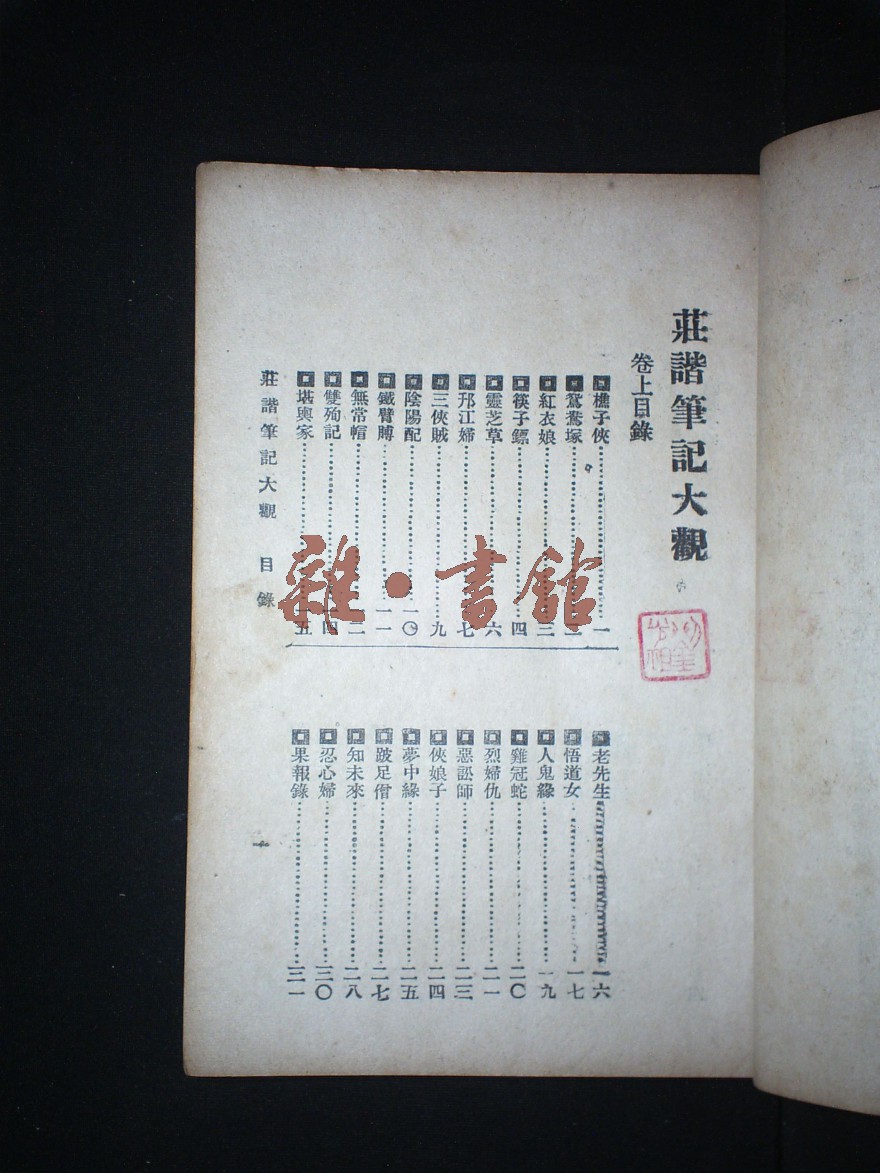 莊諧筆記大觀
卷上目錄
樵子俠 一
鴛鴦塚 二
紅衣娘 三
筷子鏢 四
靈芝草 六
邗江婦 七
三俠賊 九
陰陽配 一〇
鐵臂膊 一一
無常帽 一二
雙殉記 一四
堪輿家 一五
老先生 一六
悟道女 一七
人鬼緣 一九
雞冠蛇 二〇
烈婦仇 二一
惡訟師 二三
俠娘子 二四
夢中緣 二五
跛足僧 二七
知未來 二八
忍心婦 三〇
果報錄 三一
莊諧筆記大觀 目錄 一
雜·書館